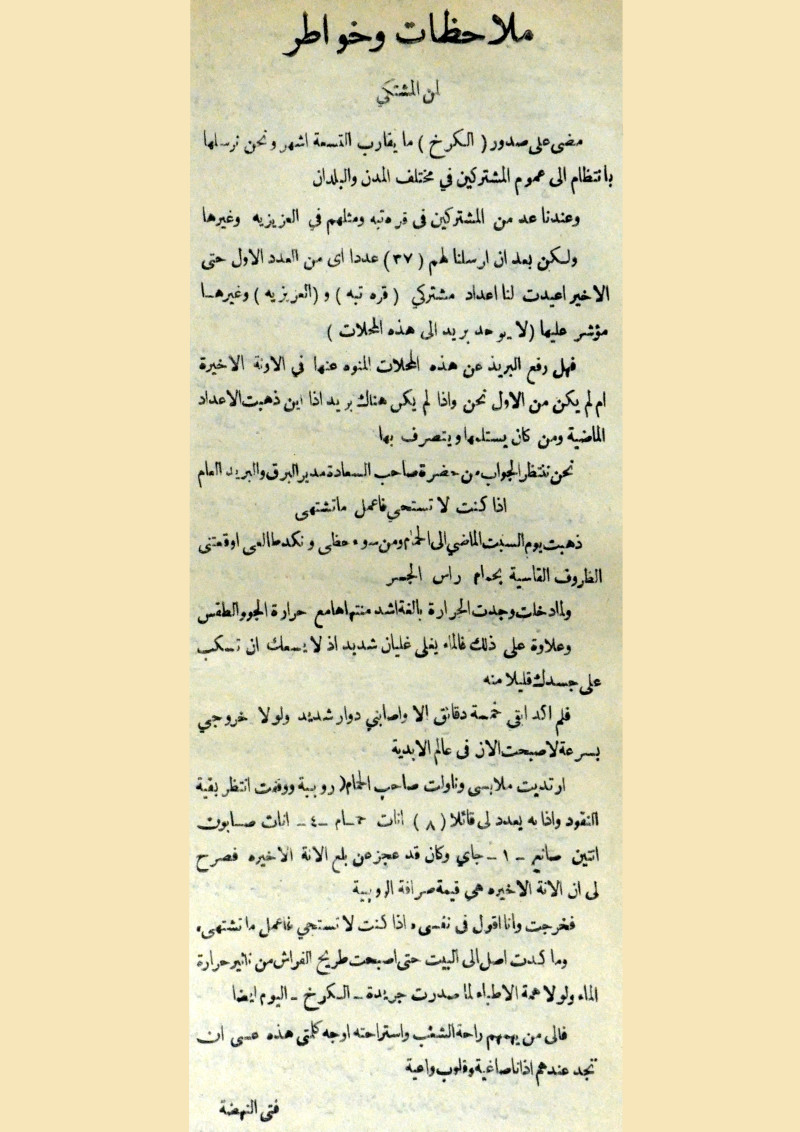 ملاحظات وخواطر
لمن المشتكي
مضى على صدور ( الكرخ ) ما يقارب التسعة اشهر ونحن نرسلها
بانتظام الى عموم المشتركين في مختلف المدن والبلدان
وعندنا عد من المشتركين فى قره تبه ومثلهم في العزيزيه وغيرها
ولكن بعد ان ارسلنا لهم ( ٣٧ ) عددا اى من العدد الاول حتى
الاخير اعيدت لنا اعداد مشتركي ( قره تبه ) و ( العزيزيه ) وغيرها
مؤشر عليها ( لا يوجد بريد الى هذه المحلات )
فهل رفع البريد عن هذه المحلات المنوه عنها في الاونة الاخيرة
ام لم يكن من الاول نحن واذا لم يكن هناك بريد اذا اين ذهبت الاعداد
الماضية ومن كان يستلمها ويتصرف بها
نحن ننتظر الجواب من حضرة صاحب السعادة مدير البرق والبريد العام
اذا كنت لا تستحي فاعمل ماتشتهى
ذهبت يوم السبت الماضي الى الحمام ومن سوء حظى ونكد طالعى اوقعتنى
الظروف القاسية بحمام راس الجسر
ولما دخلت وجدت الحرارة بالغة اشد منتهاها مع حرارة الجو والطقس
وعلاوة على ذلك فالماء يغلى غليان شديد اذ لا يسعك ان تسكب
على جسدك قليلا منه
فلم اكد ابقى خمسة دقائق الا واصابني دوار شديد ولولا خروجي
بسرعة لاصبحت الان فى عالم الابدية
ارتديت ملابسى وناولت صاحب الحمام ( روبية ووقفت انتظر بقية
النقود واذا به يعدد لى قائلا ( ٨ ) انات حمام ـ ٤ ـ انات صابون
انتين صانع ـ ١ ـ جاي وكان قد عجز عن بلع الانة الاخيره فصرح
لى ان الانة الاخيره هي قيمة صرافة الروبية
فخرجت وانا اقول فى نفسى اذا كنت لا تستحي فاعمل ما تشتهى
وما كدت اصل الى البيت حتى اصبحت طريح الفراش من تاثير حرارة
الماء ولولا همة الاطباء لما صدرت جريدة ـ الكرخ ـ اليوم ايضا
فالى من يهمهم راحة الشعب واستراحته اوجه كلمتى هذه عسى ان
تجد عندهم اذانا صاغية وقلوب واعية
فتى النهضة